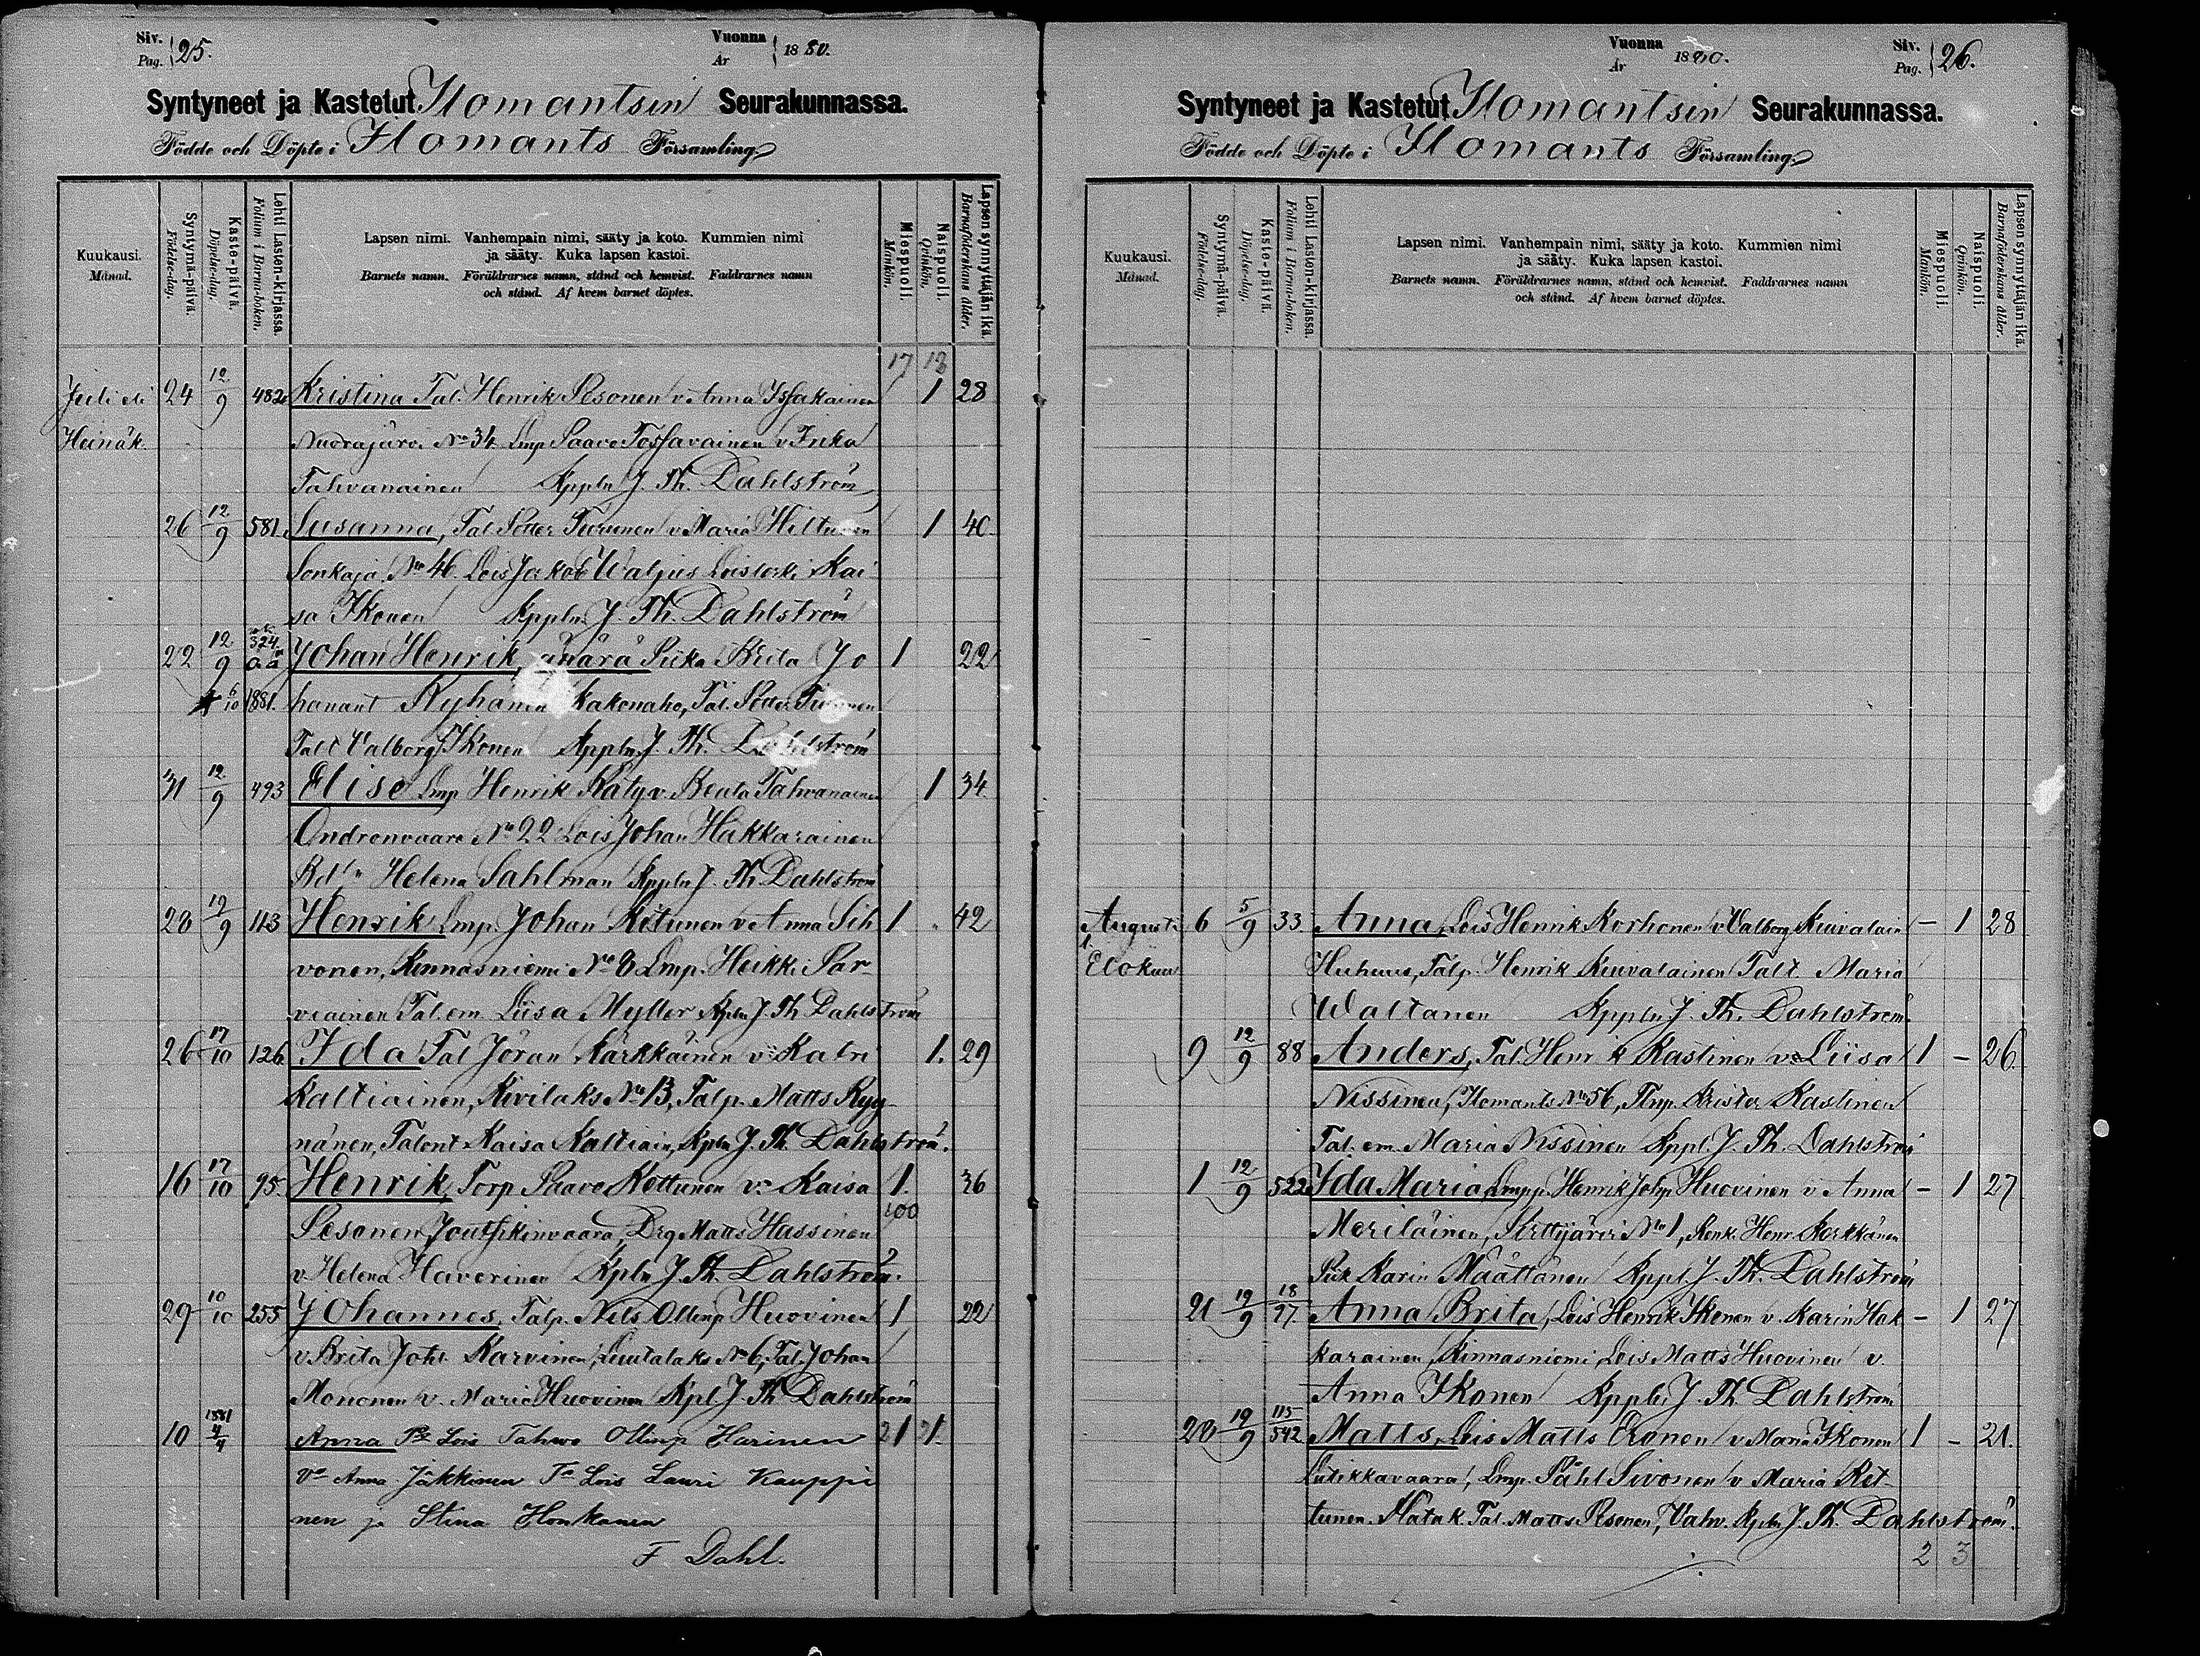 Siv. Pag. 25.
Vuonna År 1880.
Syntyneet ja Kastetut Ilomantsin Seurakunnassa.
Födde och Döpte i Ilomants Församling.
Kuukausi. Månad.
Syntymä-päivä. Födelse-dag.
Kaste-päivä. Döpelse-dag.
Lehti Lasten-kirjassa. Folium i Barna-boken.
Lapsen nimi. Vanhempain nimi, sääty ja koto. Kummien nimi
ja sääty. Kuka lapsen kastoi.
Barnets namn. Föräldrarnes namn, stånd och hemvist. Faddrarnes namn
och stånd. Af hvem barnet döptes.
Miespuoli. Mankön.
Naispuoli. Qvinkön.
Lapsen synnyttäjän ikä. Barnaföderskans ålder.
17 18
Juli eli 24 12/9 482 Kristina Tal. Henrik Sesonen v. Anna Issakainen 1 28
Heinäk. Nuorajärvi No 34 Lmp Paavo Tossavainen v. Inka
Tahvanainen Kppln J. Th. Dahlström
26 12/9 581 Susanna, Tal. Petter Turunen v. Maria Hiltunen 1 40
Sonkaja No 46. Lois Jakob Waljus Loisleski Kai
sa Ikonen Kppln J. Th. Dahlström
22 12/9 324 Johan Henrik, äpärä Piika Brita Jo 1 22
6/10 1881. hanant Ryhänen Kakonaho, Tal. Petter Turunen
Talt Valborg Ikonen Kppln J. Th. Dahlström
31 12/9 493 Elise Lmp Henrik Räty v. Beata Tahvanainen 1 34
Ondronvaara No 22 Lois Johan Hakkarainen
Helena Sahlman Kppln J. Th. Dahlström
28 12/9 113 Henrik Lmp. Johan Ketunen v. Anna Sih 1 42
vonen, Kinnasniemi No 8 Lmp. Heikki Par
viainen Tal. em. Liisa Myller Kpln J. Th Dahlström
26 17/10 126 Ida Tal Jöran Kärkkäinen v. Katri 1. 29
Kaltiainen, Kivilaks No 13, Talp. Matts Ryy
nänen, Talont. Kaisa Kaltiain, Kpln J. Th. Dahlström.
16 17/10 95. Henrik, Torp Paavo Kettunen v. Kaisa 1. 36
100
Sesonen, Drg Matts Hassinen
v. Helena Haverinen Kpln J. Th. Dahlström.
29 10/10 255 Johannes, Talp. Nils Ollinp Huovinen 1 22
v. Brita Joh. Karvinen, Luutalaks No 6, Tal. Johan
Mononen v. Maria Huovinen Kpl J. Th Dahlström
10 1881 4/4 Anna Lois Tahvo Ollinp Harinen 21 21.
Vo Anna Jäkkönen To Lois Lauri Kauppi
nen ja Stina Honkanen
F Dahl.
Vuonna År 1880.
Siv. Pag. 26.
Syntyneet ja Kastetut Ilomantsin Seurakunnassa.
Födde och Döpte i Ilomants Församling.
Kuukausi. Månad.
Syntymä-päivä. Födelse-dag.
Kaste-päivä. Döpelse-dag.
Lehti Lasten-kirjassa. Folium i Barna-boken.
Lapsen nimi. Vanhempain nimi, sääty ja koto. Kummien nimi
ja sääty. Kuka lapsen kastoi.
Barnets namn. Föräldrarnes namn, stånd och hemvist. Faddrarnes namn
och stånd. Af hvem barnet döptes.
Miespuoli. Mankön.
Naispuoli. Qvinkön.
Lapsen synnyttäjän ikä. Barnaföderskans ålder.
Augusti 6 5/9 33. Anna, Lois Henrik Korhonen v. Valborg Kuivalain – 1 28
Elokuu Huhuus, Talp. Henrik Kuivalainen Talt Maria
Waltanen Kppln J. Th. Dahlström.
9 12/9 88 Anders, Tal. Henrik Kastinen v. Liisa 1 – 26
Nissinen, Ilomants No 56, Krister Kastinen
Tal. em. Maria Nissinen Kppl. J. Th. Dahlström
1 12/9 522 Ida Maria, Lmpp. Henrik Johp. Huovinen v. Anna – 1 27
Meriläinen, No 1, Renk. Henr. Korkkänen
Piik Karin Määttänen Kppl. J. Th. Dahlström
21 19/9 18/27. Anna Brita, Lois Henrik Ikonen v. Karin Hak – 1 27
karainen, Kinnasniemi, Lois Matts Huovinen v.
Anna Ikonen Kppln J. Th. Dahlström
20 19/9 115/542 Matts, Lois Matts Eronen v Maria Ikonen 1 – 21.
Lutikkavaara, Lmp. Påhl Sivonen v Maria Ket
tunen. Hatak. Tal. Matts Pesonen, Vahv. Kpln J. Th. Dahlström.
2 3